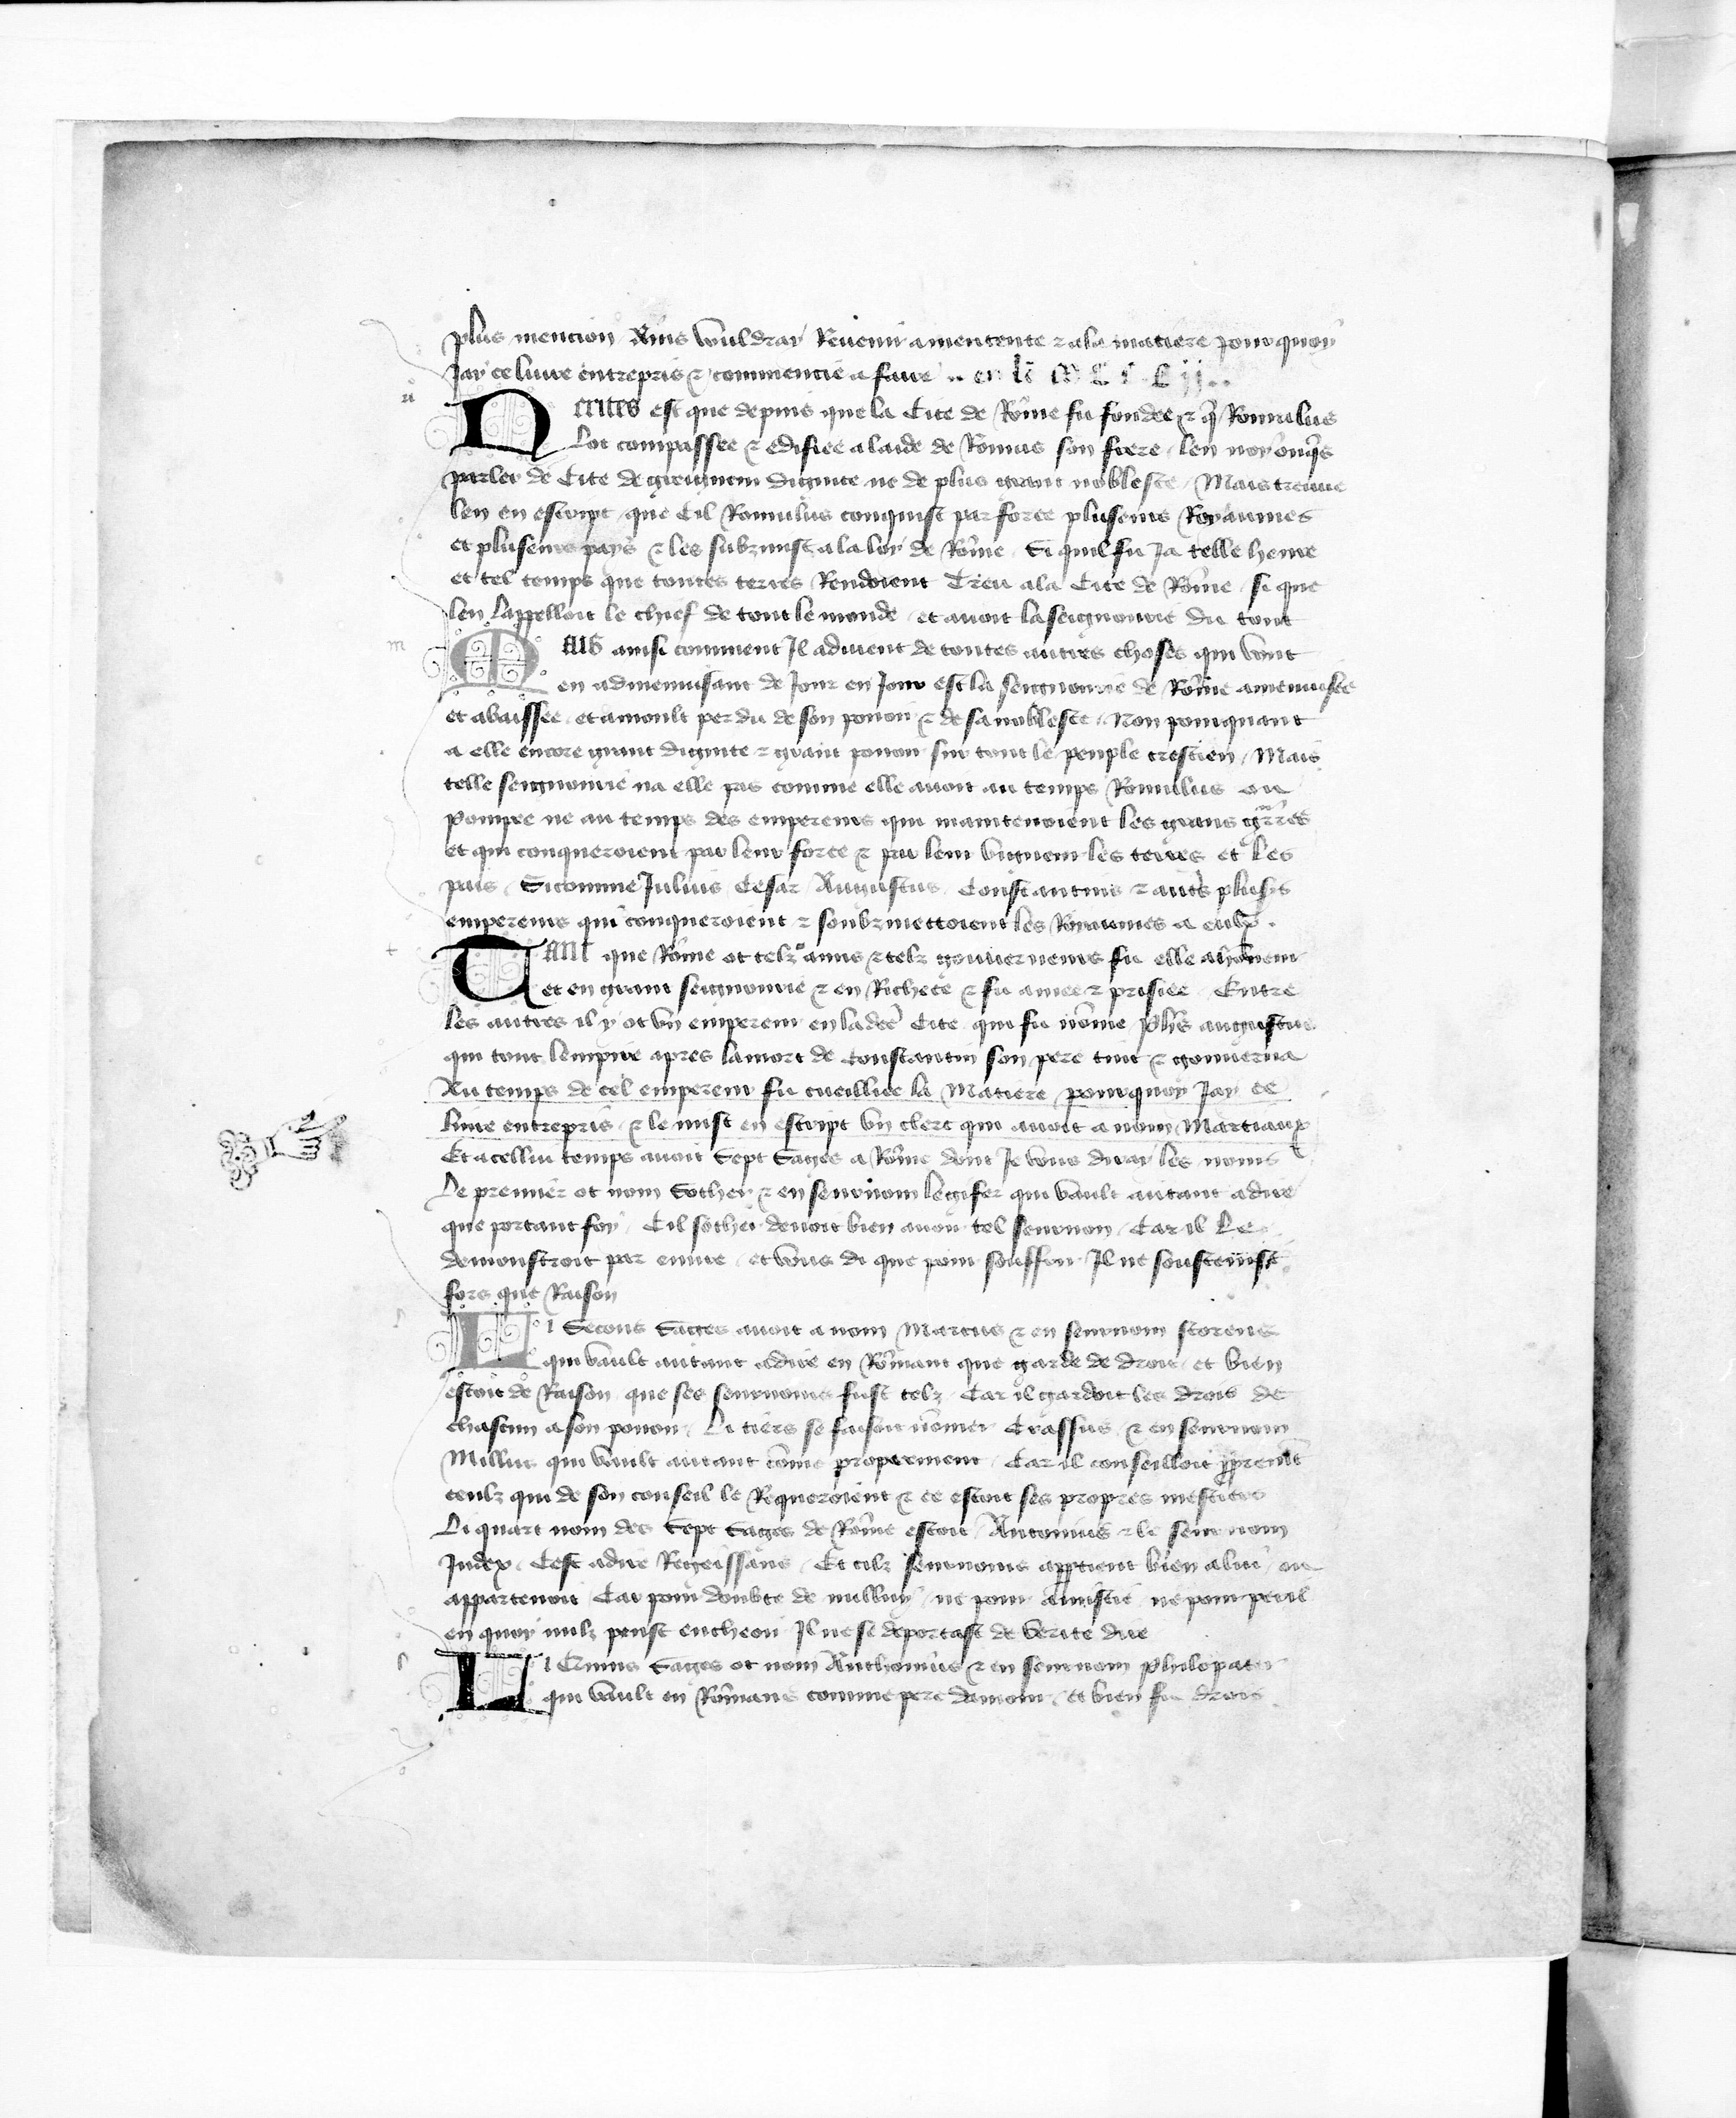 plus mencion Ains vouldray Reuenir a mentente ⁊ a la matiere pour quoy
Jay ce liure entrepris ⁊ commencie a faire
u
Erites est que depuis que la Cite de Rōme fu fondee ⁊ q̄ Romulus
Lot compassee ⁊ edifiee a laide de Romus son frere len noy onq̄s
parler de Cite de greigneur dignite ne de plus grant noblesce Mais treuue
len en escript que Cil Romulus conquist par force pluseurs Royaumes
et pluseurs pays ⁊ les subzmist a la loy de Rōme Si quil fu Ja telle heure
et tel temps que toutes terres Rendoient Treu a la Cite de Rōme si que
len Lappelloit le chief de tout le monde et auoit la seignourie du tout
m
MAIS ainsi comment Il aduient de toutes autres choses qui vont
en admenuisant de Jour en Jour est la seignourie de Rōme amenuisee
et abaissee et a moult perdu de son pouoir ⁊ de sa noblesce Non pourquant
a elle encore grant dignite ⁊ grant pouoir sur tout le peuple crestien Mais
telle seignourie na elle pas comme elle auoit au temps Romulus ou
Pompee ne au temps des empereurs qui maintenoient les grans gr̄res
et qui conqueroient par leur force ⁊ par leur vigueur les terres et les
pais Sicomme Julius Cesar Augustus Constantins ⁊ autr̄s plus̄rs
empereurs qui conqueroient ⁊ soubzmettoient les Royaumes a eulx
t
TANT que Rōme ot telz anns ⁊ telz gouuerneurs fu elle a honneur
et en grant seignourie ⁊ en Richece ⁊ fu amee ⁊ prisiee Entre
les autres il y ot vn empereur en lad̄ce Cite qui fu nōme Ph̄s augustus
qui tout lempire apres la mort de Constantin son pere tint ⁊ gouuerna
Au temps de cel empereur fu cueilliee la Matiere pourquoy Jay ce
liure entrepris ⁊ le mist en escript vn clerc qui auoit a nom Martiaux
Et a celluy temps auoit Sept Sages a Rōme dont Je vous diray les noms
Le premier ot nom Sother ⁊ en seurnom legifer qui vault autant a dire
que portant foy Cil sother deuoit bien auoir tel seurnon Car il Le
demonstroit par euure et vous di que pour souffrir Il ne soustenist
fors que Raison
l
LI Secons Sages auoit a nom Marcus ⁊ en seurnom storeus
qui vault autant a dire en Rōmant que garde de droit et bien
estoit de Raison que ses seurnoms fust telz Car il gardoit les drois de
chascun a son pouoir Li tiers se faisoit nōmer Crassus ⁊ en seurnom
Millius qui vault autant cōme proprement Car il conseilloit ꝓprem̄t
ceulz qui de son conseil le Requeroient ⁊ ce estoit ses propres mestiers
Li quart nom des Sept Sages de Rōme estoit Antonius ⁊ le seurnom
Judex Cest a dire Regeissans Et cilz seurnoms apptient bien a lui ou
appartenoit Car pour doubte de nulluy ne pour amistie ne pour peril
en quoy nulz peust encheoir Il ne se deportast de verite dire
l
LI Quins Sages ot nom Anthonius ⁊ en seurnom Philopater
qui vault en Rōmans comme pere damour et bien fu drois